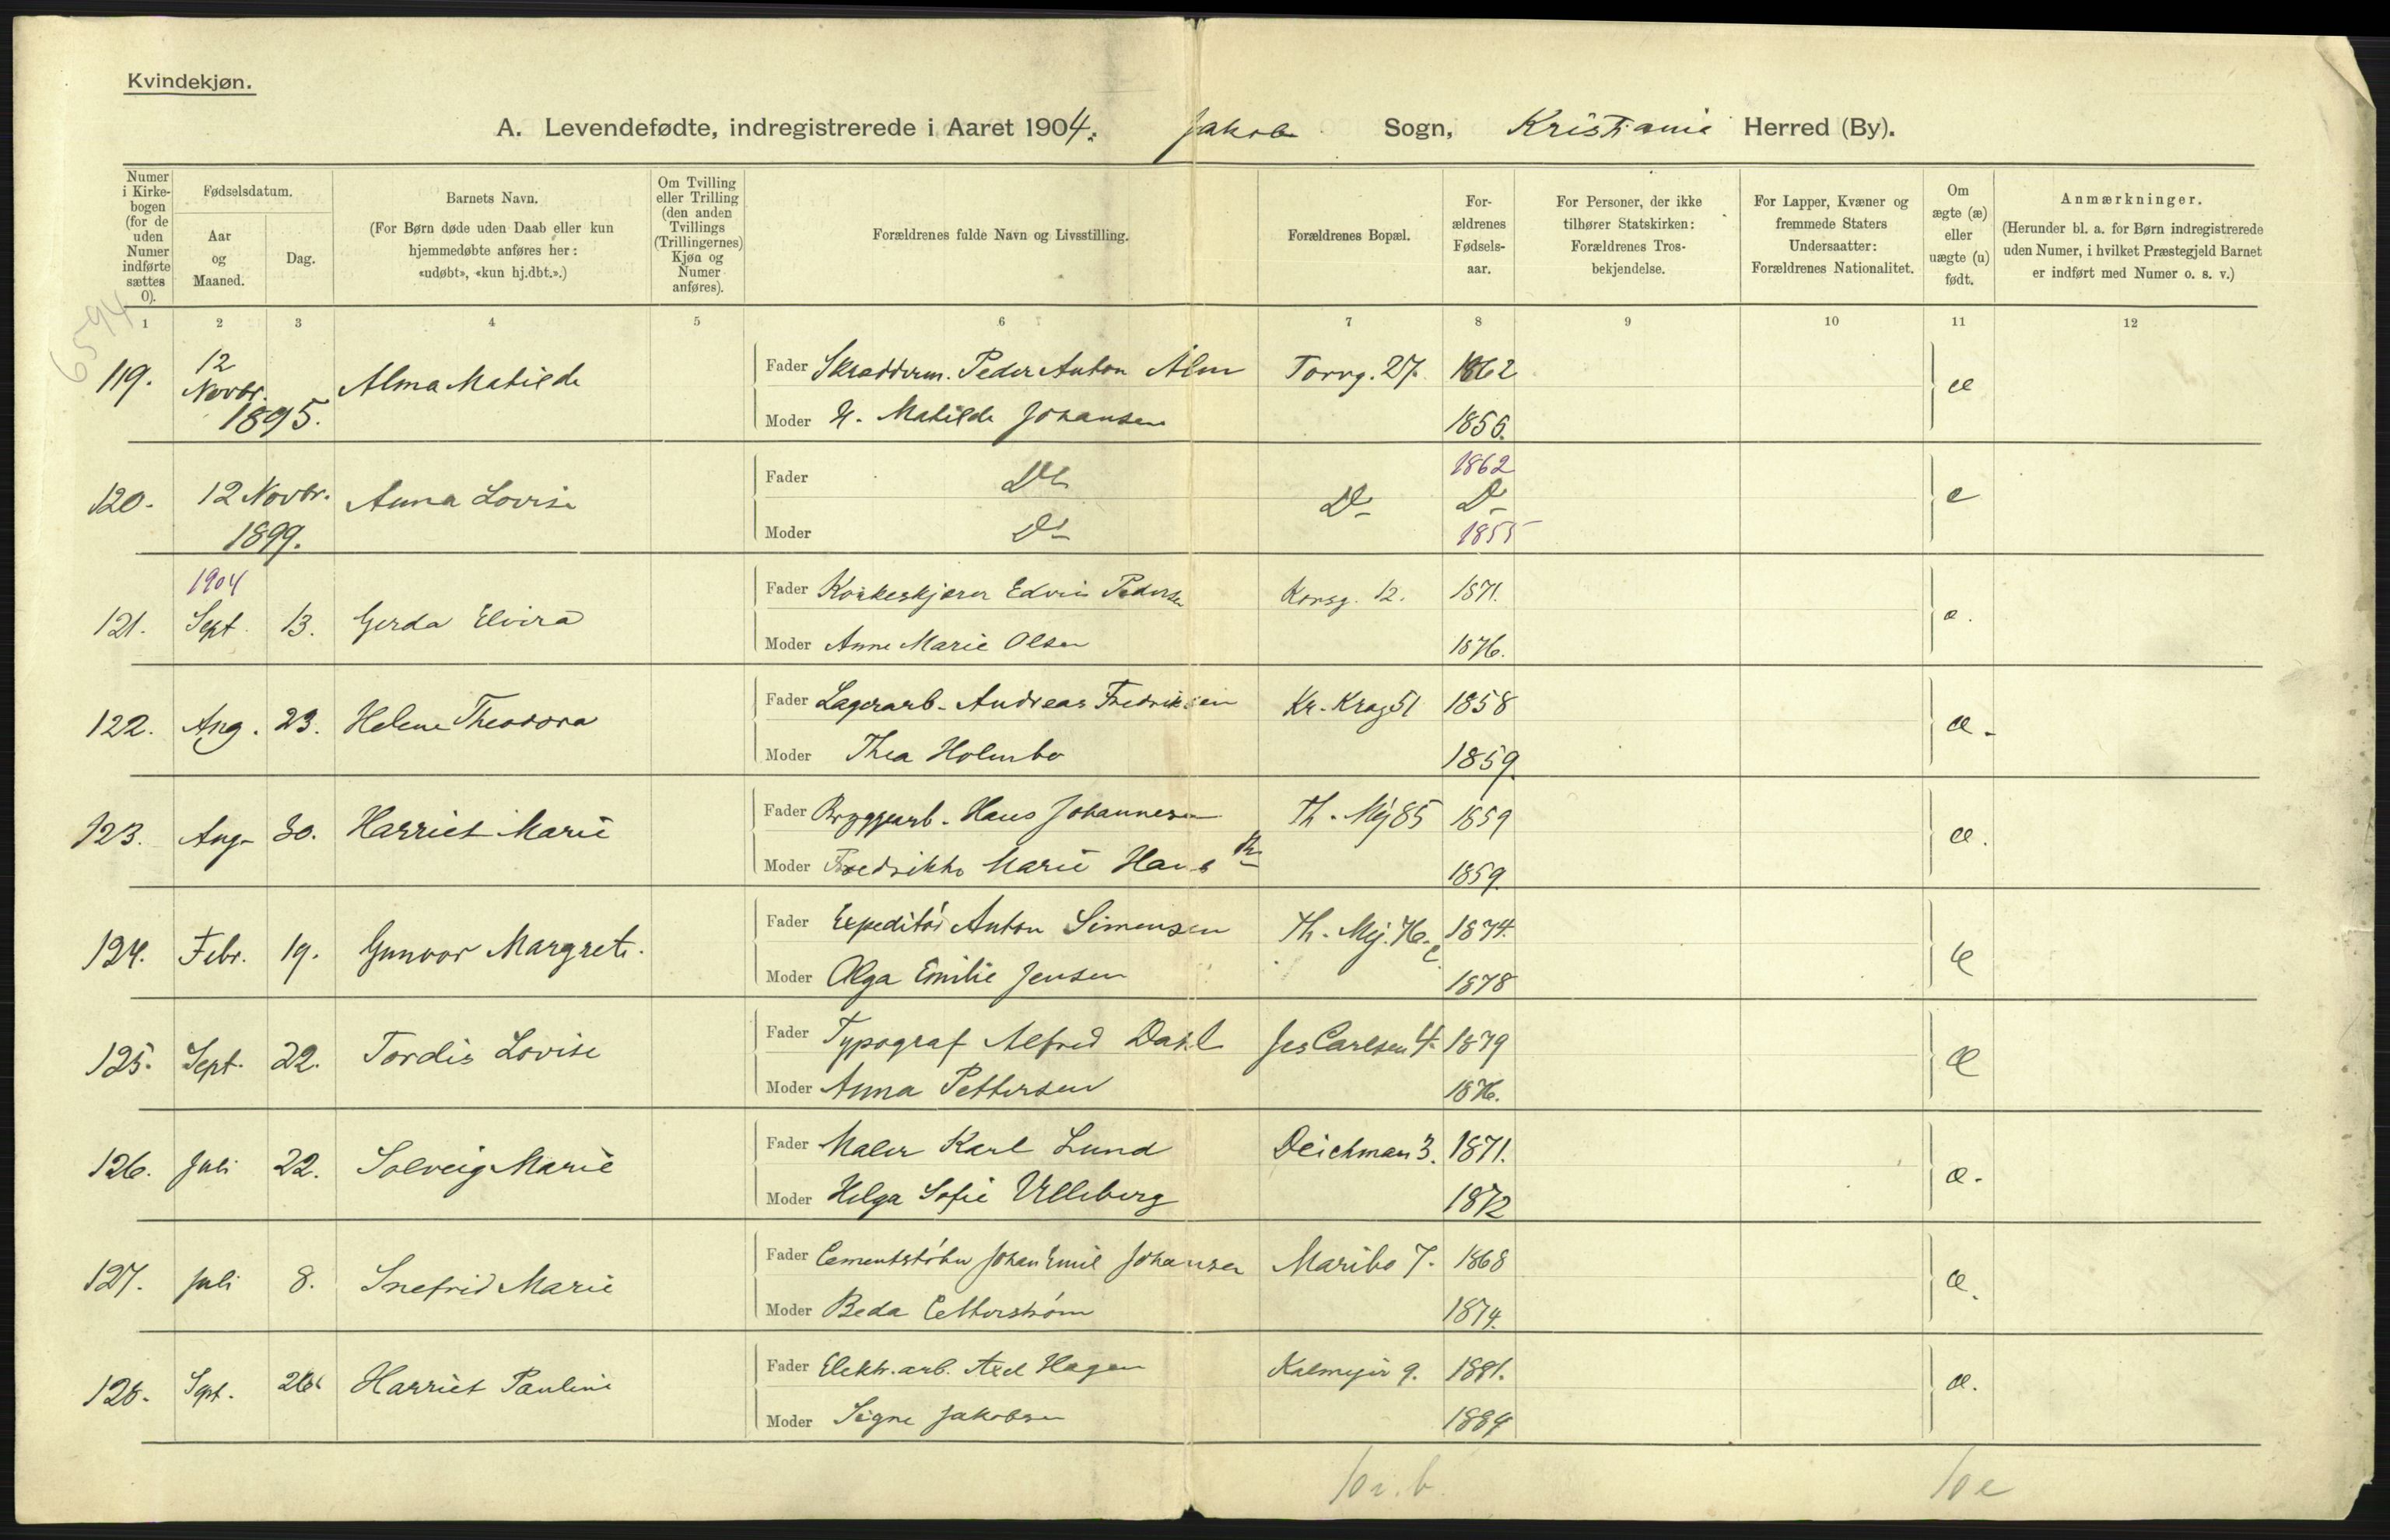 Kvindekjøn.
A. Levendefødte, indregistrerede i Aaret 1904. Jakob Sogn, Kristiania Herred (By).
Numer i Kirkebogen (for de uden Numer indførte sættes 0).
Fødselsdatum.
Aar og Maaned.
Dag.
Barnets Navn.
(For Børn døde uden Daab eller kun hjemmedøbte anføres her: «udøbt», «kun hj.dbt.».)
Om Tvilling eller Trilling (den anden Tvillings (Trillingernes) Kjøn og Numer anføres).
Forældrenes fulde Navn og Livsstilling.
Forældrenes Bopæl.
Forældrenes Fødselsaar.
For Personer, der ikke tilhører Statskirken: Forældrenes Trosbekjendelse.
For Lapper, Kvæner og fremmede Staters Undersaatter: Forældrenes Nationalitet.
Om ægte (æ) eller uægte (u) født.
Anmærkninger.
(Herunder bl. a. for Børn indregistrerede uden Numer, i hvilket Præstegjeld Barnet er indført med Numer o. s. v.)
1 2 3 4 5 6 7 8 9 10 11 12
6594
119. 12 Novbr. 1895. Alma Matilde Fader Skrædderm. Peder Anton Alm Torvg. 27. 1862 æ
Moder H. Matilde Johansen 1855.
120. 12 Novbr. 1899. Anna Lovise Fader Do Do 1862 Do æ
Moder Do 1855
121. 1904 Sept. 13. Gerda Elvira Fader Korkeskjærer Edvin Pedersen Korsg. 12. 1871. æ.
Moder Anne Marie Olsen 1876.
122. Aug. 23. Helene Theodora Fader Lagerarb. Andreas Fredriksen Kr. Krag 51 1858 æ.
Moder Thea Holmbo 1859.
123. Aug. 30. Harriet Marie Fader Bryggearb. Hans Johannesen Th. Mej 85 1859 æ.
Moder Fredrikke Marie Hansdtr 1859.
124. Febr. 19. Gunvor Margrete. Fader Expeditør Anton Simensen Th. Mej. 76. c 1874. æ
Moder Olga Emilie Jensen 1878
125. Sept. 22. Tordis Lovise Fader Typograf Alfred Dahl Jes Carlsen 4. 1879 æ
Moder Anna Pettersen 1876.
126. Juli 22. Solveig Marie Fader Maler Karl Lund Deichman 3. 1871. æ.
Moder Helga Sofie Ulleberg 1872
127. Juli 8. Snefrid Marie Fader Cementstøber Johan Emil Johansen Maribo 7. 1868 æ.
Moder Beda Cetterstrøm 1874.
128. Sept. 26. Harriet Pauline Fader Elektr. arb. Axel Hagen Kalmejer 9. 1881. æ.
Moder Signe Jakobsen 1884
10 i. b. 10 e